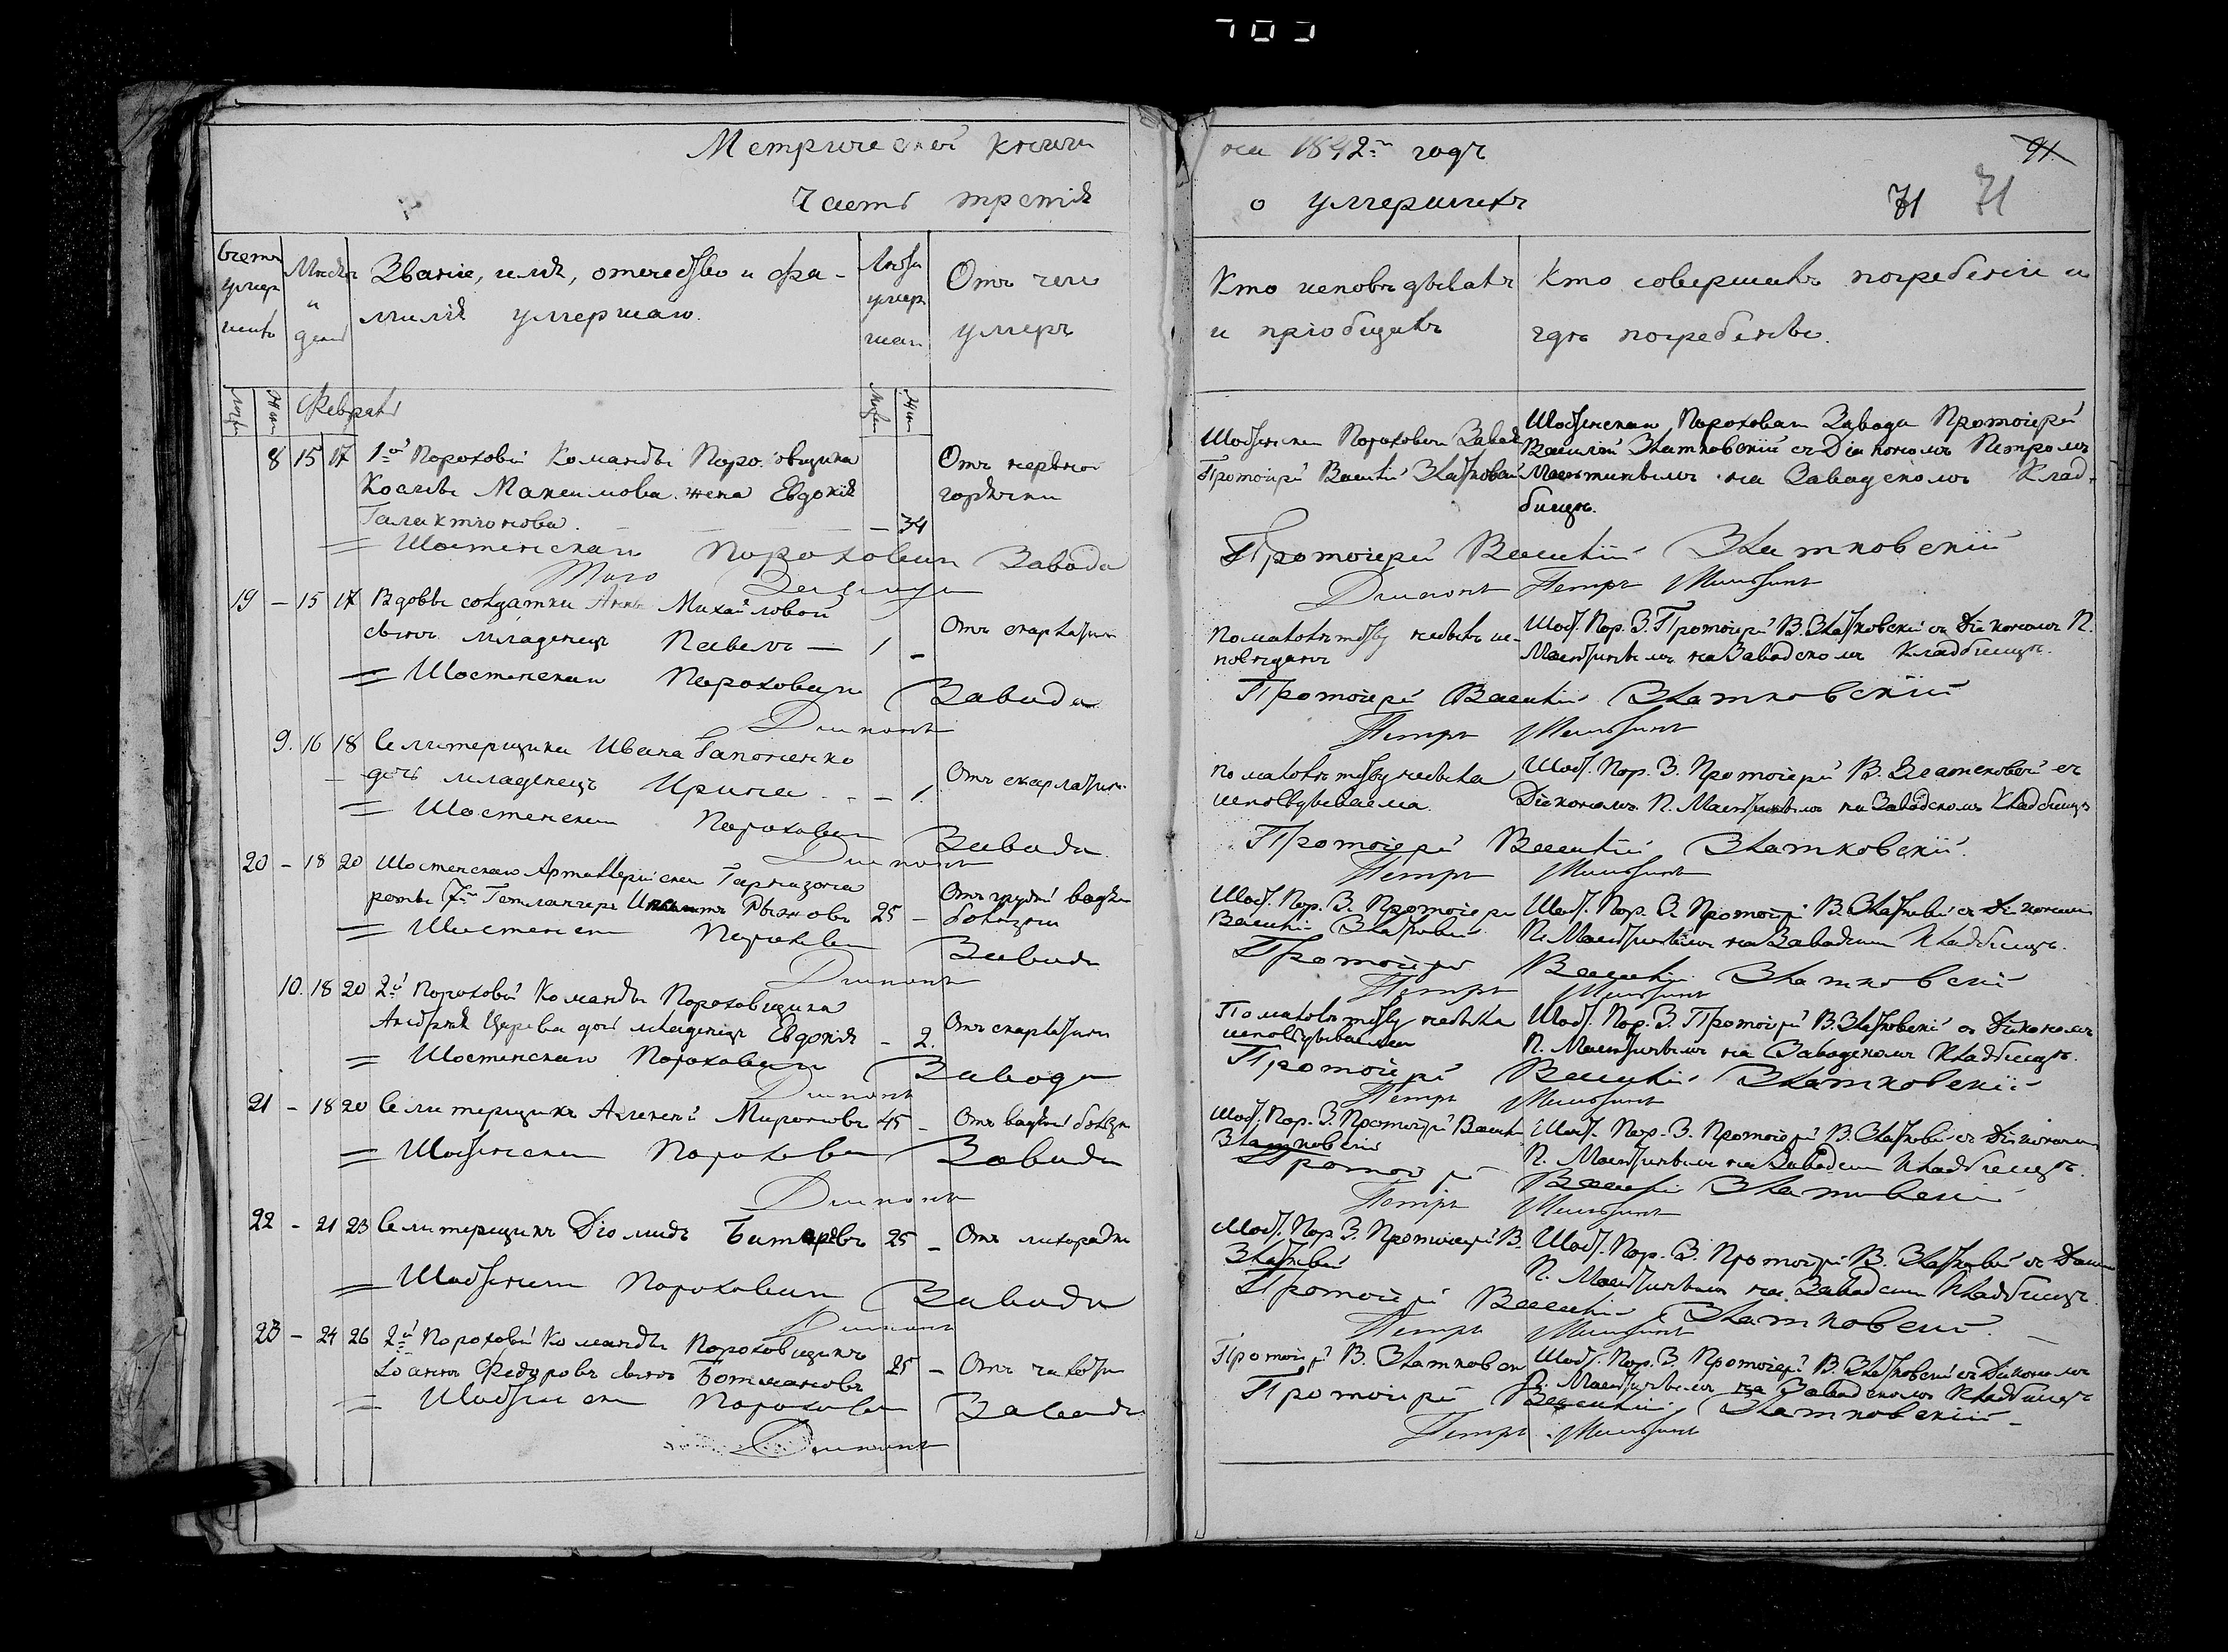 703
Метрической книги
Часть третія
на 1842й годъ
о умершихъ
91
71 71
Счетъ умершихъ
Мѣсяцъ и день
Званіе, имя, отечество и фа-
милія умершаго.
Лѣта умершаго
Отъ чего
умеръ
Кто исповѣдывалъ
и пріобщилъ
Кто совершалъ погребеніе и
гдѣ погребены.
Муж. Жен. Февраль Муж. Жен.
8 15 17 1й Пороховой Команды Пороховщика
Максимова жена Евдокія
Галактіонова. — 34
Отъ нервной
горячки
Шостенскаго Пороховаго Завода
Протоіерей Василій Златковскій
Шостенскаго Пороховаго Завода Протоіерей
Василій Златковскій съ Діакономъ Петромъ
на Заводскомъ Клад-
бищѣ.
= Шостенскаго Пороховаго Завода
Протоіерей Василій Златковскій
Діаконъ Петръ
19 — 15 17 Вдовы солдатки Анны Михайловой
сынъ младенецъ Павелъ — 1 —
Отъ скарлатины
По малолѣтству небылъ ис-
повѣданъ
Шост. Пор. З. Протоіерей В. Златковскій съ Діакономъ П.
на Заводскомъ Кладбищѣ.
= Шостенскаго Пороховаго Завода
Протоіерей Василій Златковскій
Діаконъ Петръ
9. 16 18 Селитерщика Ивана Гапоненко
дочь младенецъ Ирина — 1.
Отъ скарлатины
По малолѣтству небыла
исповѣдываема
Шост. Пор. З. Протоіерей В. Златковскій съ
Діакономъ П. на Заводскомъ Кладбищѣ
= Шостенскаго Пороховаго Завода
Протоіерей Василій Златковскій
Діаконъ Петръ
20 — 18 20 Шостенскаго Артиллерійскаго Гарнизона
роты № 7й Рыжовъ 25 —
Отъ грудной водяной
болѣзни
Шост. Пор. З. Протоіерей
Василій Златковскій
Шост. Пор. З. Протоіерей В. Златковскій съ Діакономъ
П. на Заводскомъ Кладбищѣ.
= Шостенскаго Пороховаго Завода
Протоіерей Василій Златковскій
Діаконъ Петръ
10. 18 20 2й Пороховой Команды Пороховщика
Андрея Царева дочь младенецъ Евдокія — 2.
Отъ скарлатины
По малолѣтству небыла
исповѣдываема
Шост. Пор. З. Протоіерей В. Златковскій съ Діакономъ
П. на Заводскомъ Кладбищѣ.
= Шостенскаго Пороховаго Завода
Протоіерей Василій Златковскій
Діаконъ Петръ
21 — 18 20 Селитерщикъ Алексѣй Мироновъ 45 —
Отъ водяной болѣзни
Шост. Пор. З. Протоіерей Василій
Златковскій
Шост. Пор. З. Протоіерей В. Златковскій съ Діакономъ
П. на Заводскомъ Кладбищѣ.
= Шостенскаго Пороховаго Завода
Протоіерей Василій Златковскій
Діаконъ Петръ
22 — 21 23 Селитерщикъ Діомидъ 25 —
Отъ лихорадки
Шост. Пор. З. Протоіерей В.
Златковскій
Шост. Пор. З. Протоіерей В. Златковскій съ Діакономъ
П. на Заводскомъ Кладбищѣ.
= Шостенскаго Пороховаго Завода
Протоіерей Василій Златковскій
Діаконъ Петръ
23 — 24 26 2й Пороховой Команды Пороховщикъ
Іоаннъ Федоровъ сынъ 25 —
Отъ чахотки
Протоіерей В. Златковскій
Шост. Пор. З. Протоіерей В. Златковскій съ Діакономъ
П. на Заводскомъ Кладбищѣ
= Шостенскаго Пороховаго Завода
Протоіерей Василій Златковскій
Діаконъ Петръ